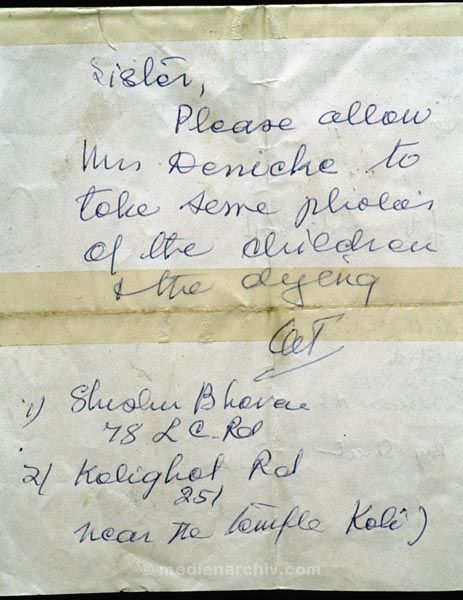 Sister,
Please allow
Mrs Denicke to
take some photos
of the children
& the dying
1) Shishu Bhavan
78 L C. Rd
2) Kalighat Rd
251
near the temple Kali)
© medienarchiv.com